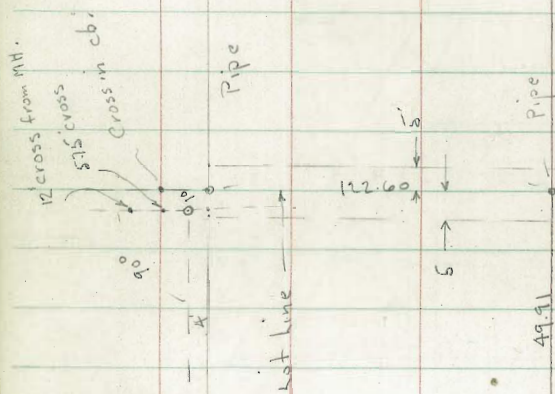 12' cross from MH.
5.75' cross
Cross in cb.
Pipe
1'
90°
4'
Lot Line
122.60
5'
5
Pipe
1'
49.91